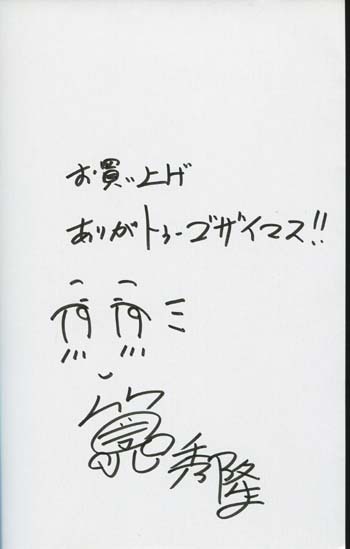 お買い上げ
ありがトぅーゴザイマス!!
筧秀隆